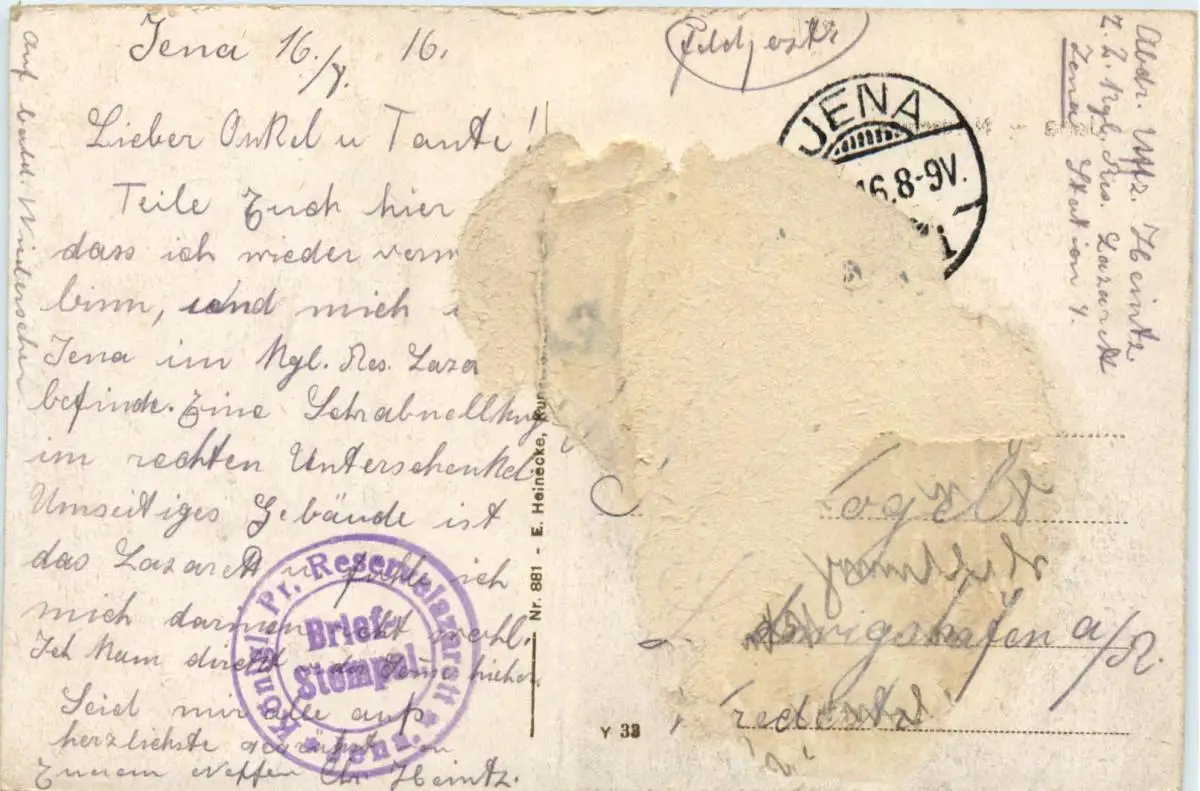 Jena 16./8. 16.
Lieber Onkel u Tante!
Teile Euch hier
dass ich wieder
binn, und mich
Jena im Kgl. Res. Laza
befinde. Eine Schrabnellkug
im rechten Unterschenkel.
Umseitiges Gebäude ist
das Lazarett u fühle ich
mich darinen recht wohl.
Ich kam direkt hieher
Seid mir alle aufs
herzlichste gegrüßt von
Eurem Neffen Chr. Heintz.
auf bald. Wiedersehen
Feldpostk
JENA
16.8-9V.
Abdr. Uffz. Heintz
z. Z. Kgl. Res. Lazarett
Jena Station 4.
Nr. 881 - E. Heinecke, Kun
Königl. Pr. Reservelazarett Jena
Brief-
Stempel
Ludwigshafen a/R.
Y 33